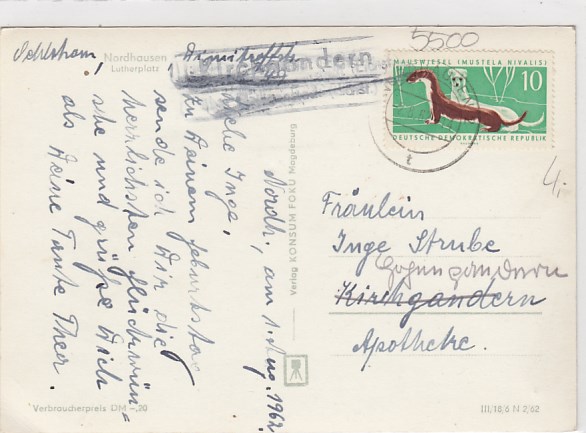 5500
Nordhausen
Lutherplatz
MAUSWIESEL (MUSTELA NIVALIS)
10
DEUTSCHE DEMOKRATISCHE REPUBLIK
Nordh., am 1. Aug. 1962.
Liebe Inge,
zu Deinem Geburtstag
sende ich Dir die
herzlichsten Glückwün-
sche und grüße Dich
als Deine Tante Thea.
Verlag KONSUM FOKU Magdeburg
4.-
Fräulein
Inge Strube
Hohengandern
Kirchgandern
Apotheke.
Verbraucherpreis DM -,20
III/18/6 N 2/62